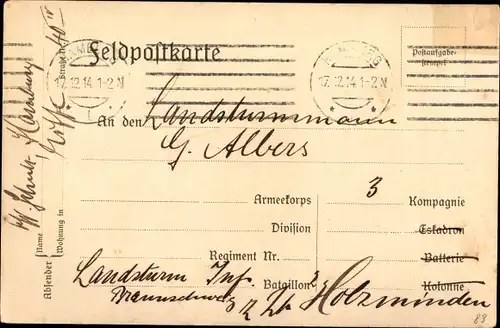 Feldpostkarte
HAMBURG
17.12.14.1-2N
HAMBURG
17.12.14.1-2N
Postaufgabe-
stempel
An den Landsturmmann
G. Albers
Armeekorps
3 Kompagnie
Division
Eskadron
Regiment Nr.
Batterie
Landsturm Inf. Bataillon
Kolonne
Holzminden
Absender
Name
Wohnung in
Straße Nr.
W. Hamburg
89